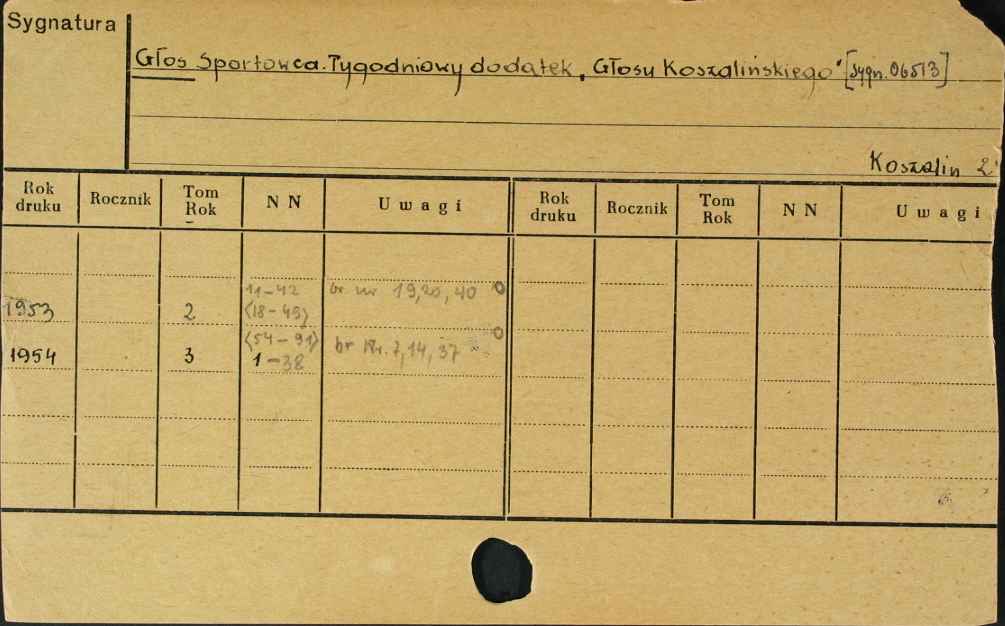 Sygnatura
Głos Sportowca. Tygodniowy dodatek „Głosu Koszalińskiego" [sygn. 06513]
Koszalin 2
Rok druku Rocznik Tom Rok N N Uwagi Rok druku Rocznik Tom Rok N N Uwagi
11-42 br. nr 19, 20, 40
1953 2 (18-49)
(54-91) br Nr. 7, 14, 37
1954 3 1-38